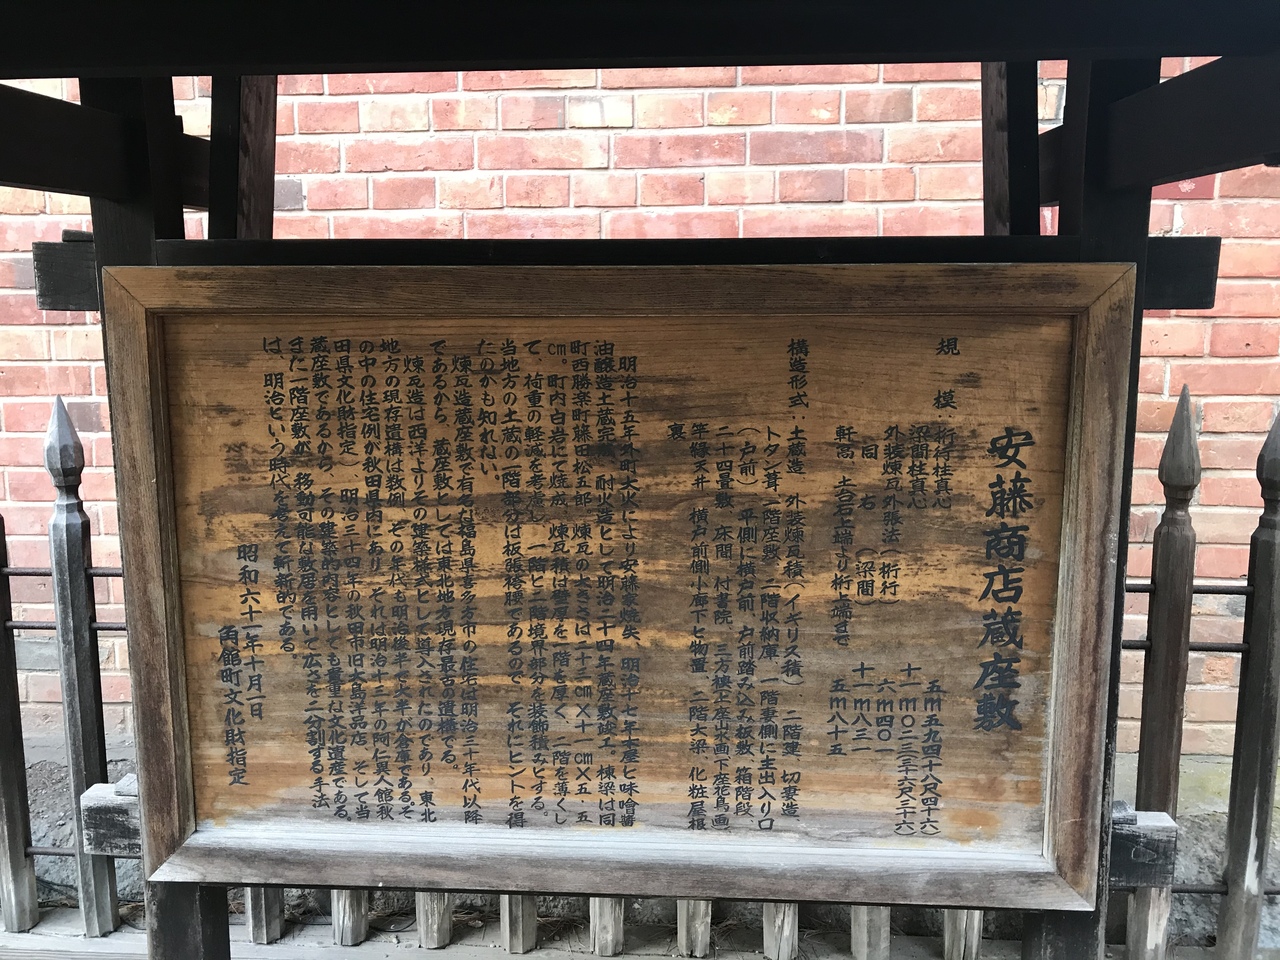 安藤商店蔵座敷
規模 桁行柱真心 五m五九四十八尺四十六)
梁間柱真心 十一m〇二三三十六尺三十六)
外装煉瓦外張法(桁行) 六m四〇一
同 右 (梁間) 十一m八三一
軒高、土台石上端より桁上端まで 五m八十五
構造形式・土蔵造、外装煉瓦積(イギリス積)、二階建、切妻造、
トタン葺、一階座敷、二階収納庫、一階妻側に主出入り口
(戸前)、平側に横戸前、戸前踏み込み板敷、箱階段、
二十四畳敷、床間、付書院、三方襖上座山水画下座花鳥画)
竿縁天井、横戸前側小廊下と物置、二階大梁、化粧屋根
裏
明治十五年外町大火により安藤家焼失、明治十七年本座と味噌醤
油醸造土蔵完成、耐火造として明治二十四年蔵座敷竣工、棟梁は同
町西勝楽町藤田松五郎、煉瓦の大きさは二十三cm×十一cm×五・五
cm。町内白岩にて焼成、煉瓦積は壁厚を一階を厚く、二階を薄くし
て、荷重の軽減を考慮し、一階と二階境界部分を装飾積みとする。
当地方の土蔵の一階部分は板張袴腰であるので、それにヒントを得
たのかも知れない。
煉瓦造蔵座敷で有名な福島県喜多方市の住宅は明治三十年代以降
であるから、蔵座敷としては東北地方現存最古の遺構である。
煉瓦造は西洋よりその建築様式として導入されたのであり、東北
地方の現存遺構は数例、その年代も明治後半で大半が倉庫である。そ
の中の住宅例が秋田県内にあり、それは明治十三年の阿仁異人館秋
田県文化財指定)、明治三十四年の秋田市旧大島洋品店、そして当
蔵座敷であるから、その建築的内容としても重要な文化遺産である。
また一階座敷が、移動可能な敷居を用いて広さを二分割する手法
は、明治という時代を考えて斬新的である。
昭和六十一年十月一日
角館町文化財指定